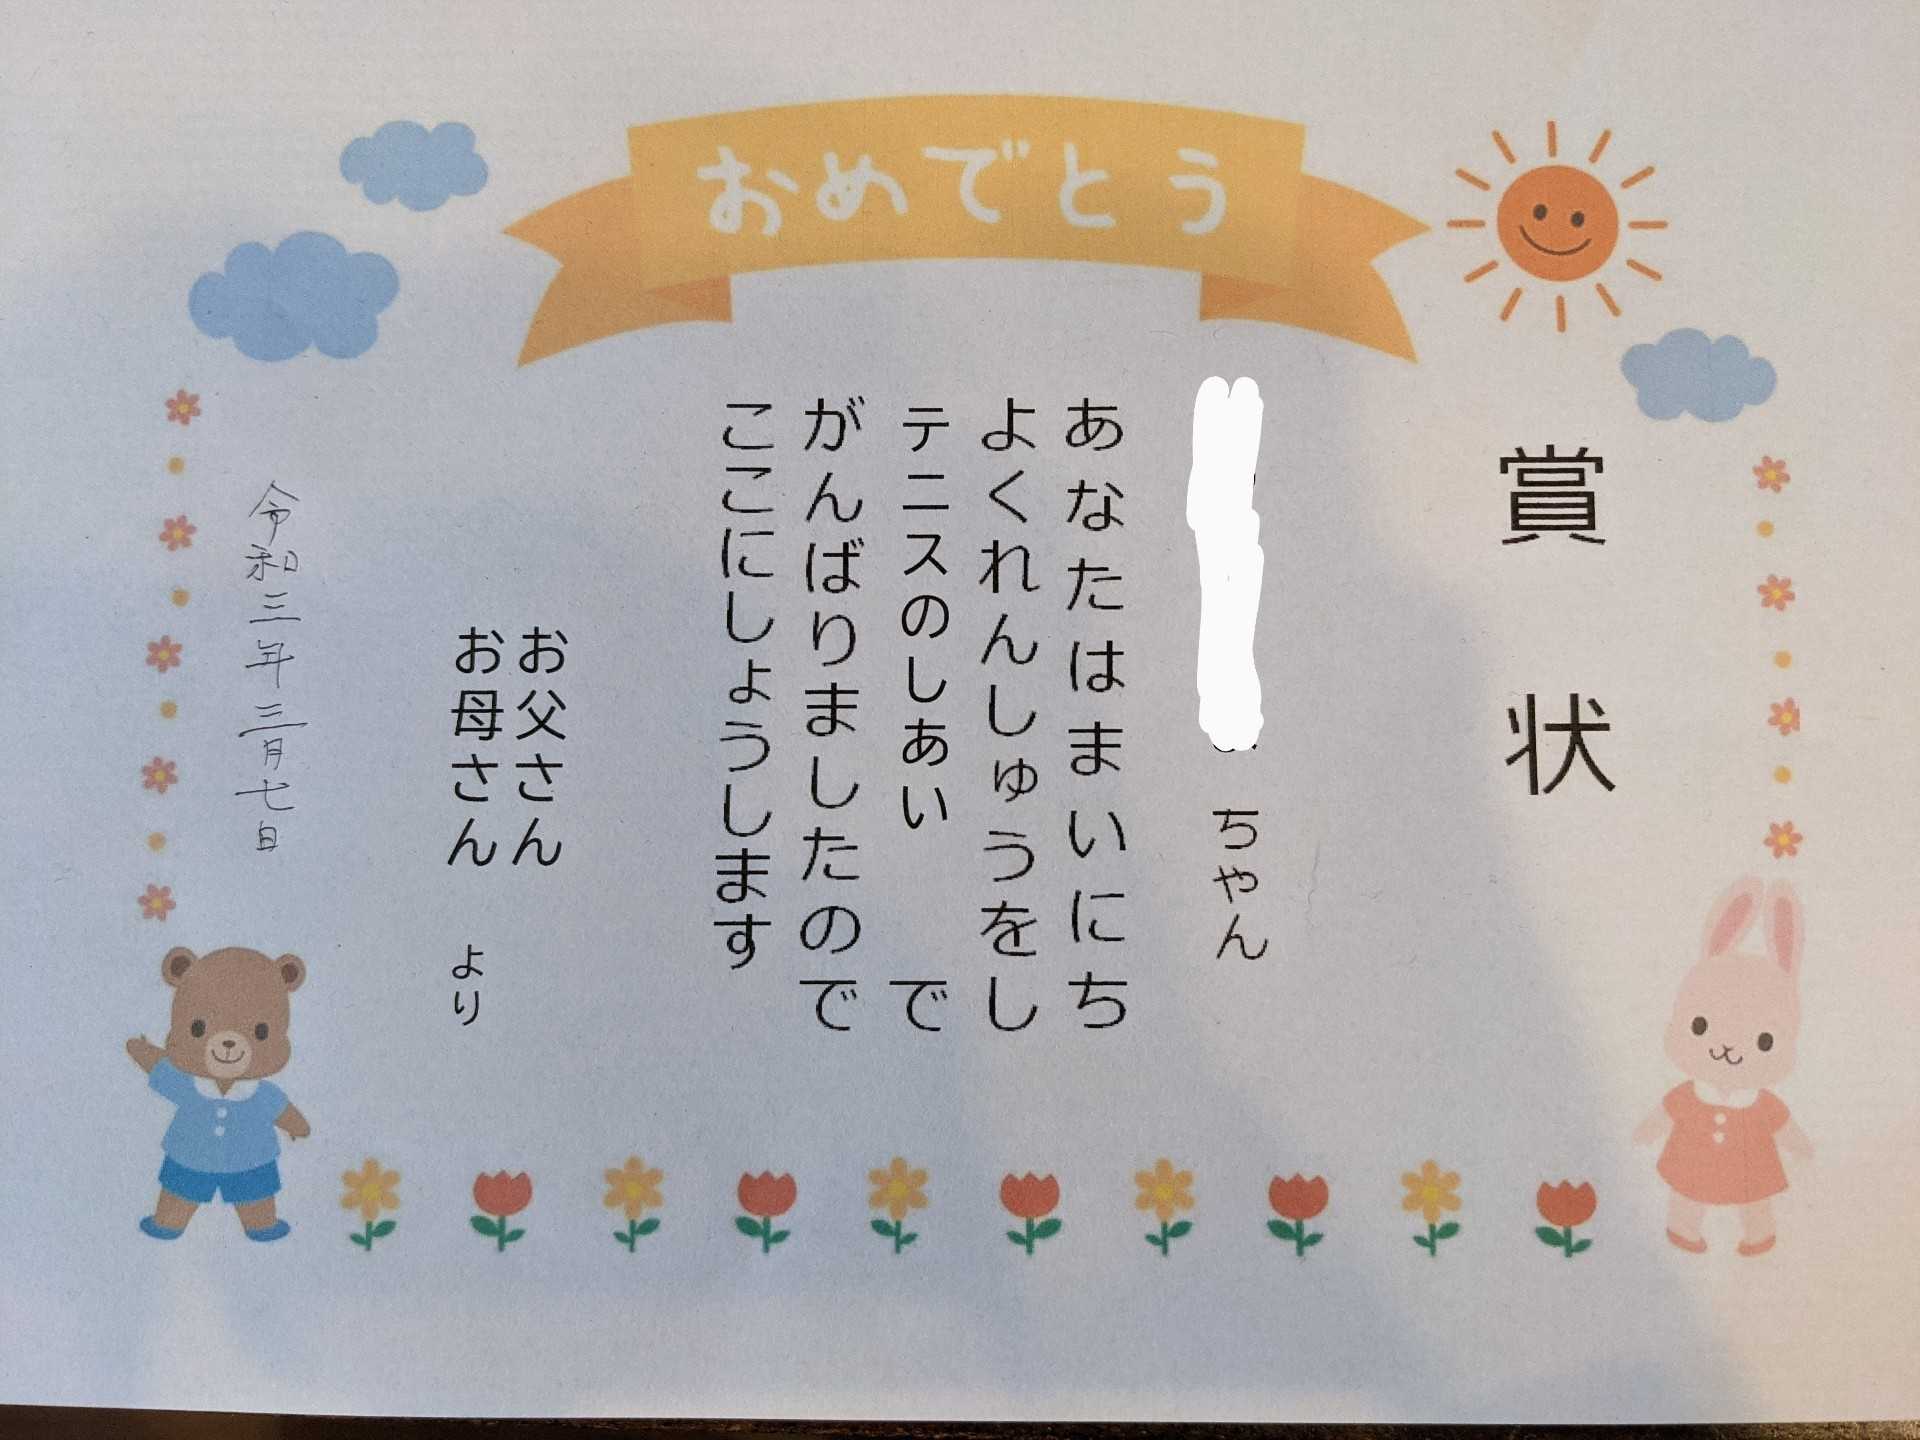 おめでとう
賞状
ちゃん
あなたはまいにち
よくれんしゅうをし
テニスのしあい で
がんばりましたので
ここにしょうします
お父さん
お母さん より
令和三年三月七日